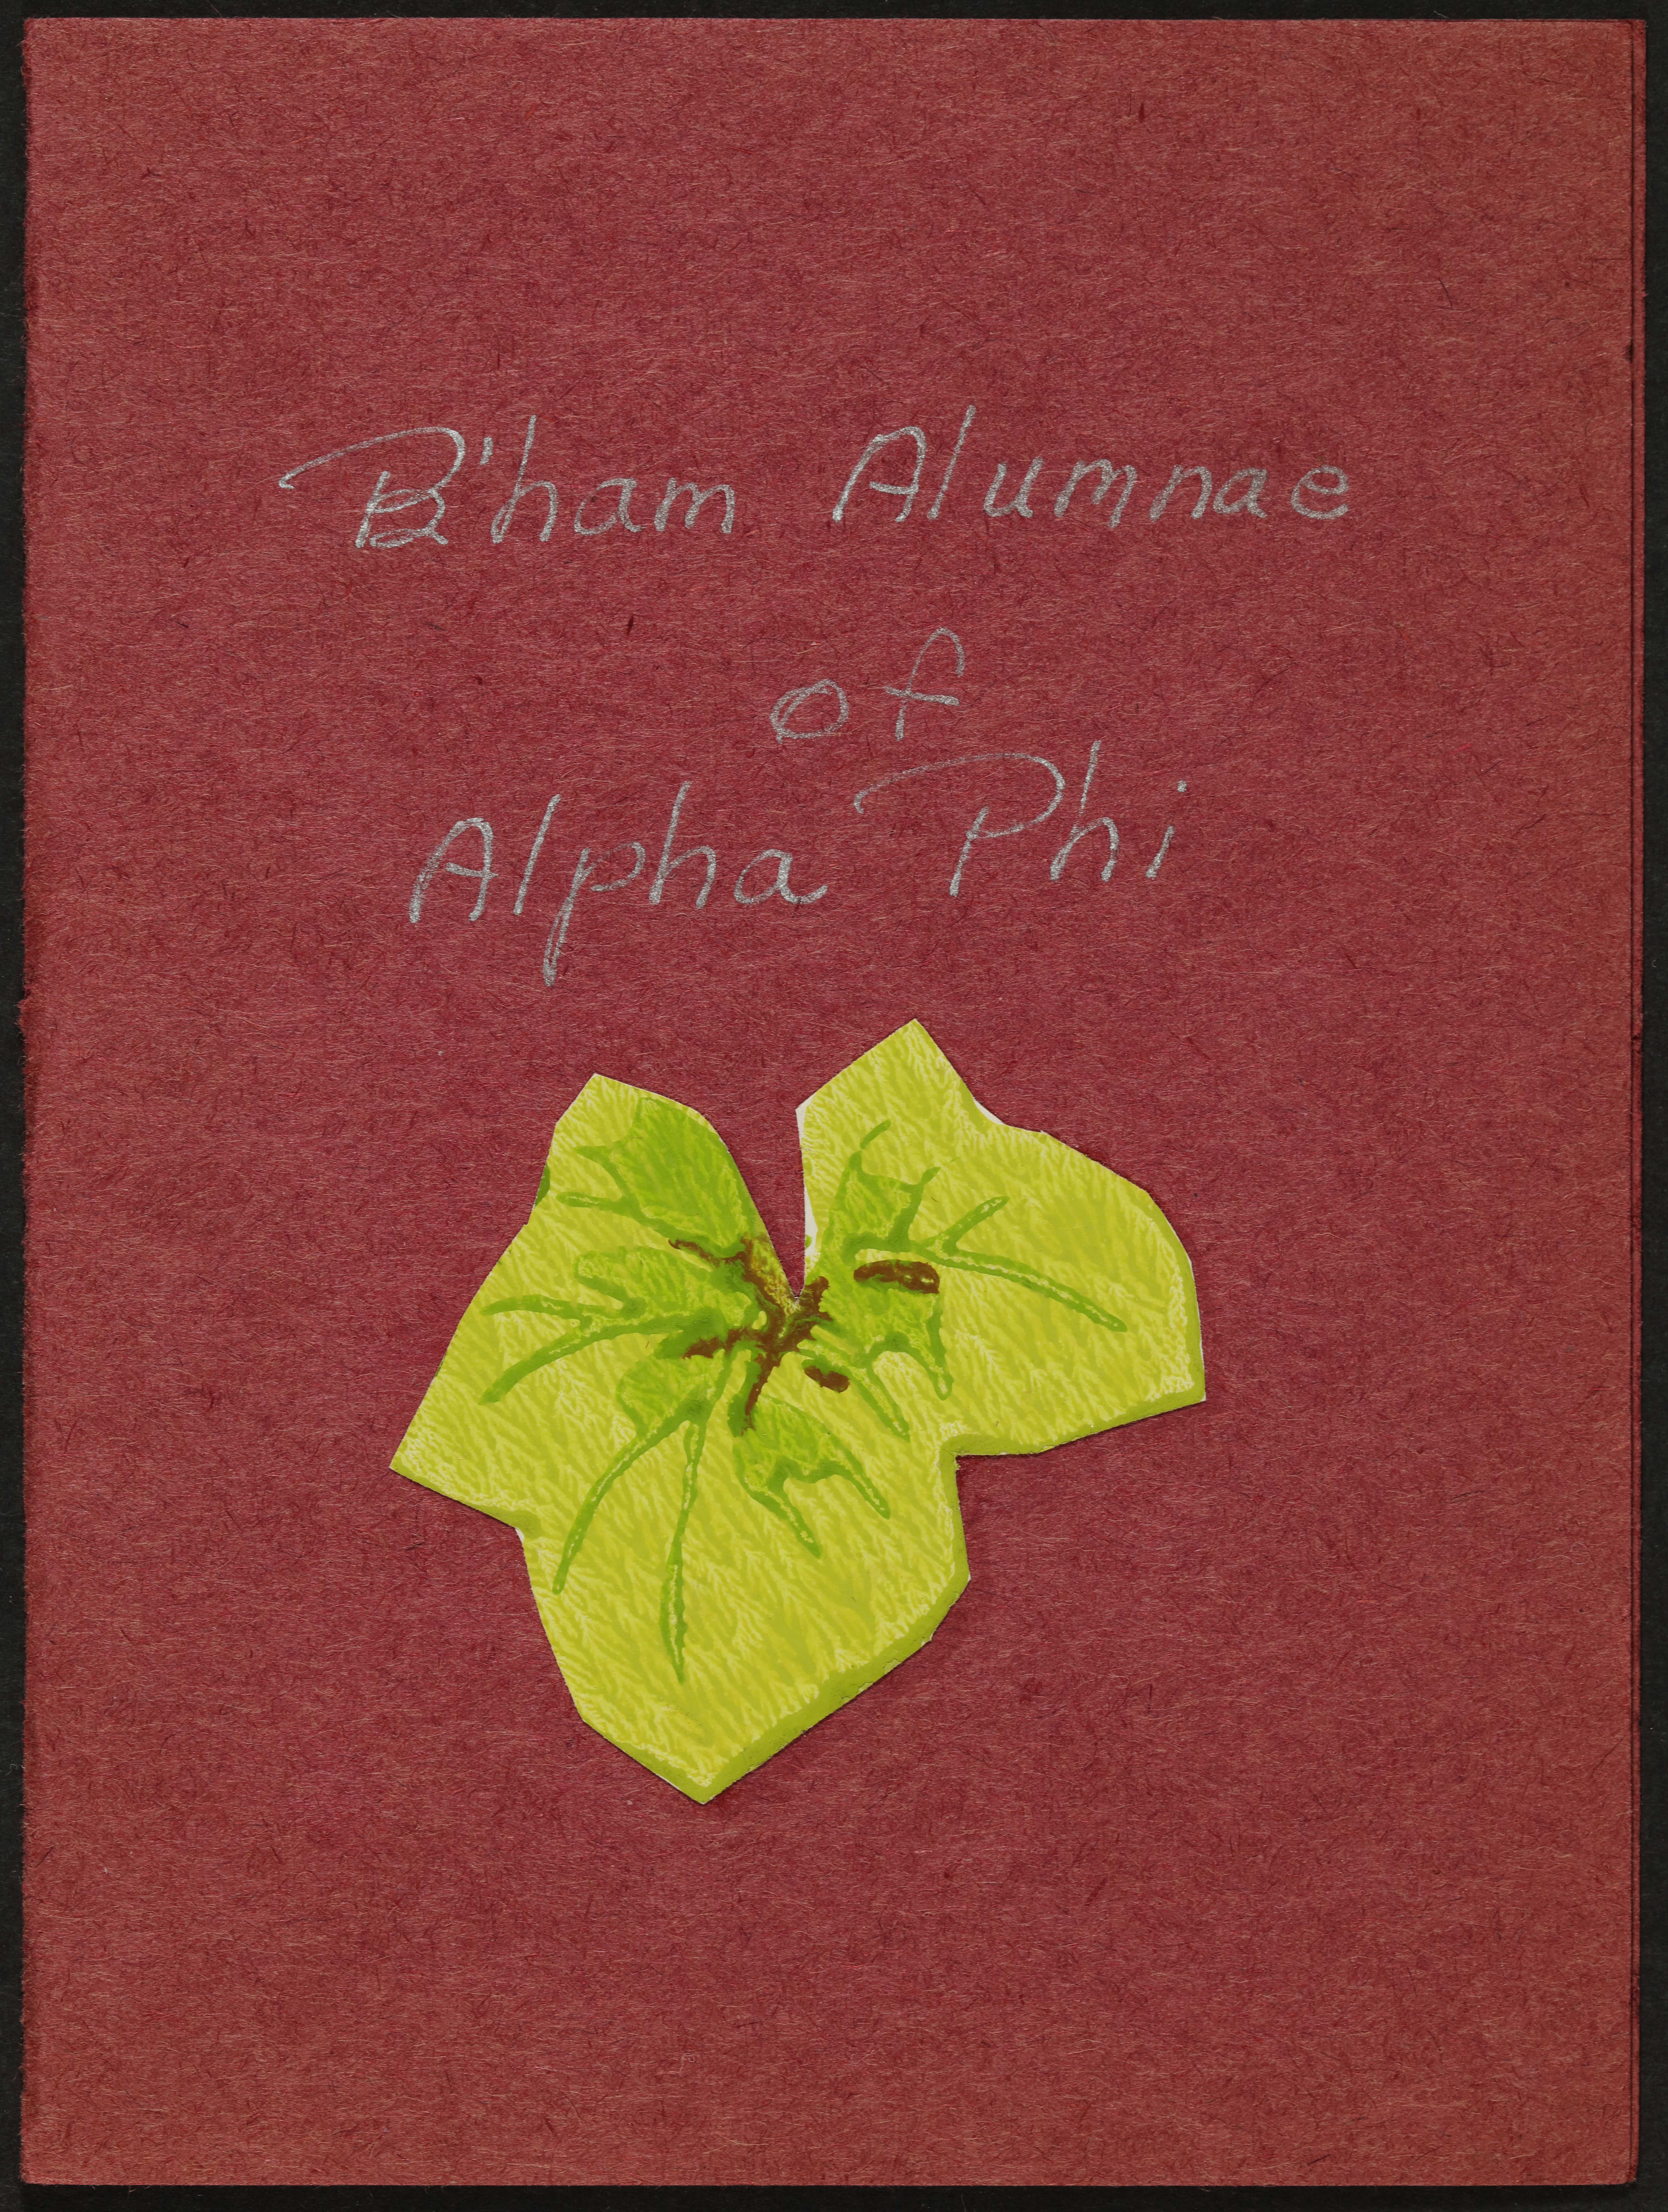 B'ham Alumnae
of
Alpha Phi